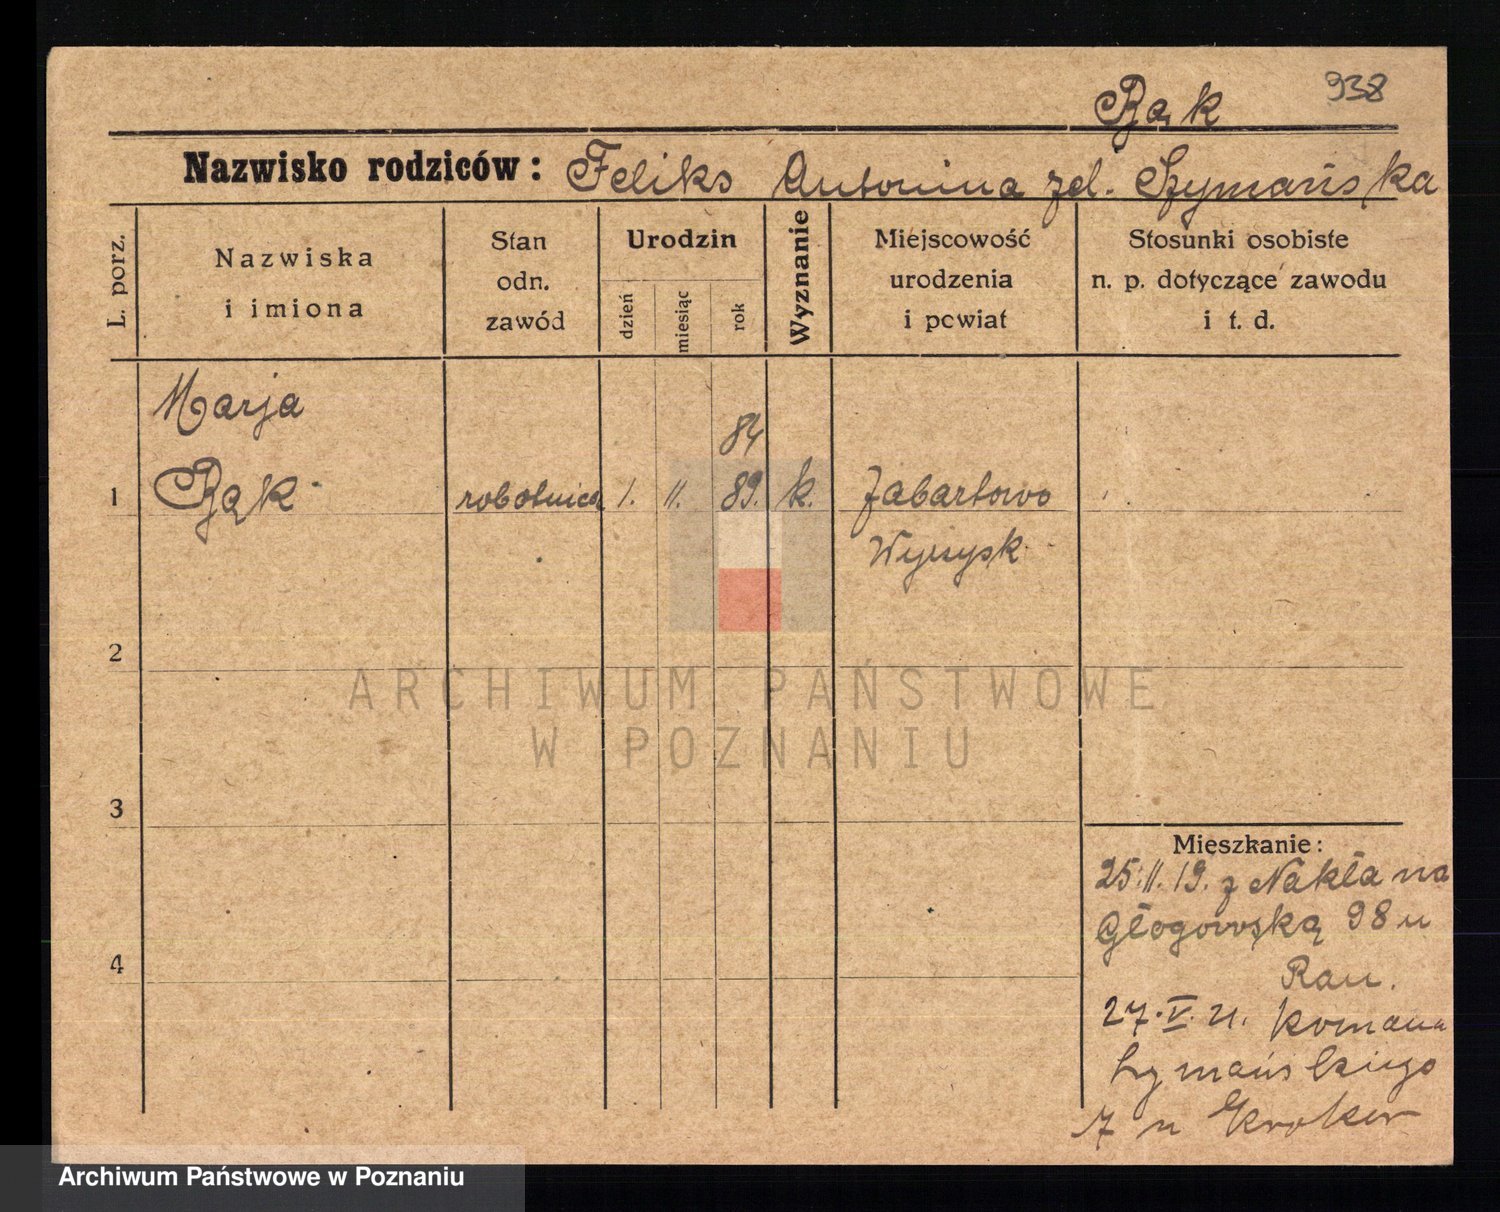 938
Bąk
Nazwisko rodziców: Feliks Antonina zd. Szymańska
L. porz.
Nazwiska
i imiona
Stan
odn.
zawód
Urodzin
dzień
miesiąc
rok
Wyznanie
Miejscowość
urodzenia
i powiat
Stosunki osobiste
n. p. dotyczące zawodu
i t. d.
Marja
84
1 Bąk robotnica 1. 11. 89. k. Zabartowo
Wyrzysk
2
3
4
Mieszkanie:
25.11.19. z Nakła na
Głogowską 98 u
Rau.
27.V.21. Romana
Szymańskiego
7 u Kroker
ARCHIWUM PAŃSTWOWE
W POZNANIU
Archiwum Państwowe w Poznaniu